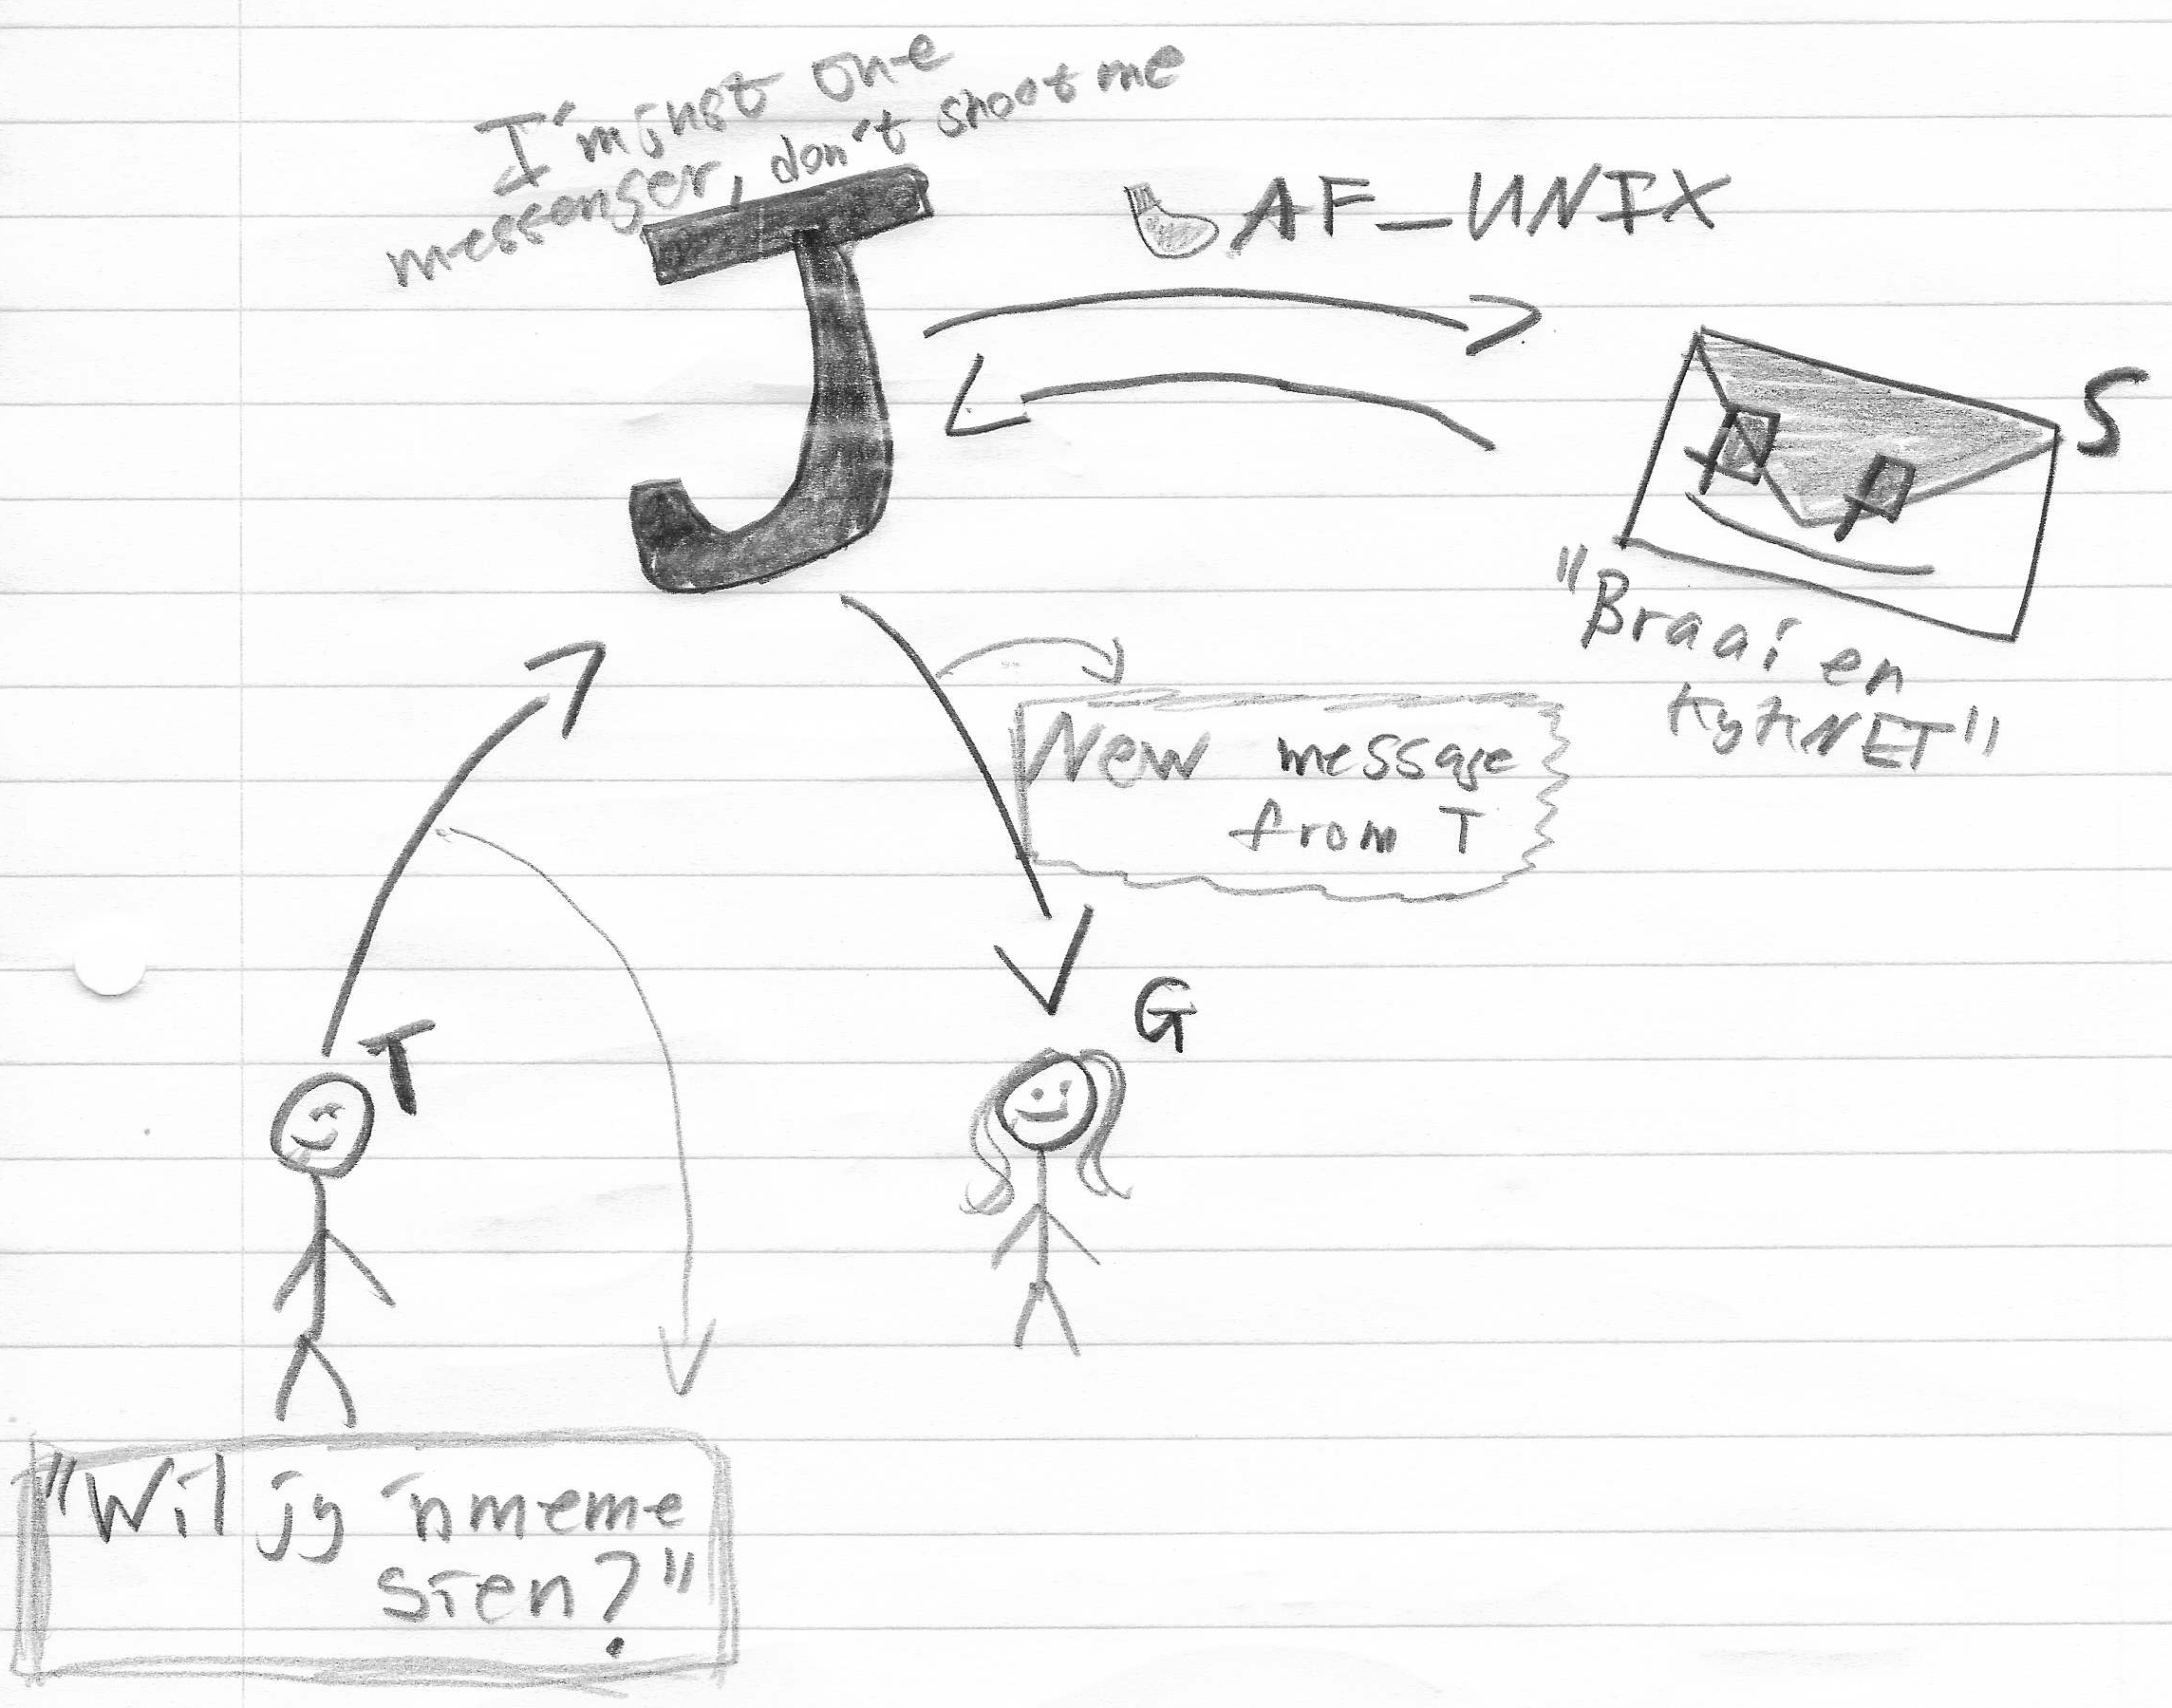 I'm just one
messenger, don't shoot me
J
AF_UNIX
S
"Braai en
kykNET"
New message
from T
T
G
"Wil jy 'n meme
sien?"